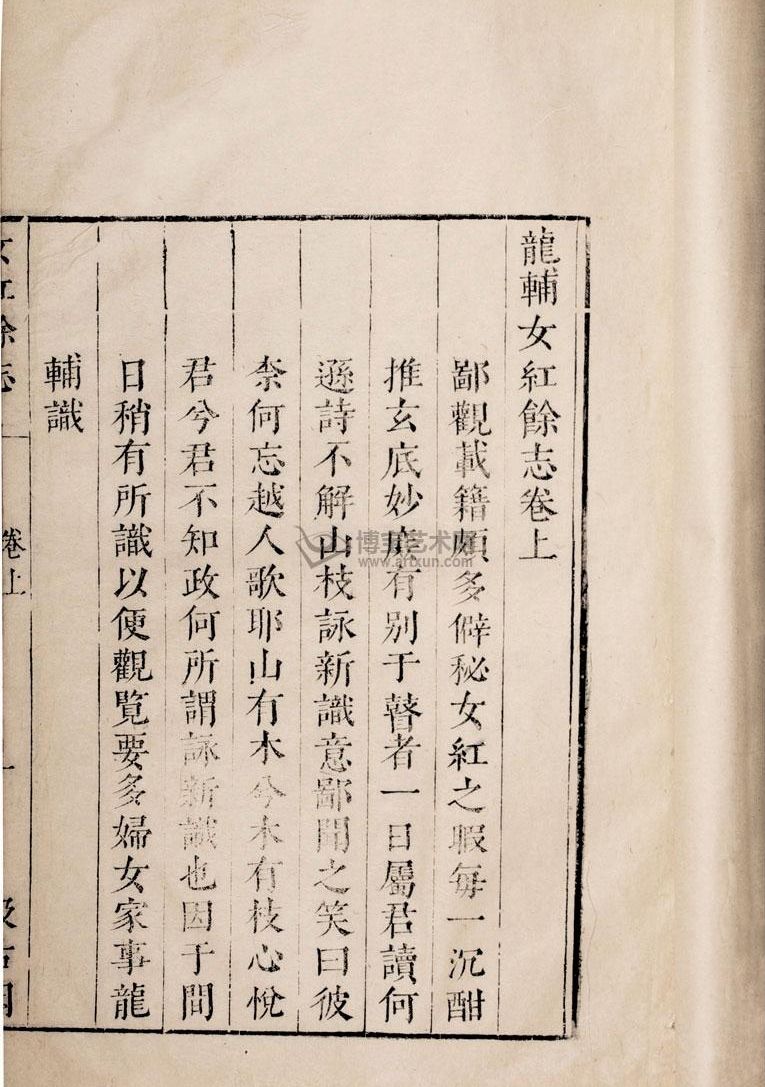 龍輔女紅餘志卷上
鄙觀載籍頗多僻秘女紅之暇每一沉酣
推玄底妙庶有别于瞽者一日屬君讀何
遜詩不解山枝詠新識意鄙聞之笑曰彼
柰何忘越人歌耶山有木兮木有枝心悅
君兮君不知政何所謂詠新識也因于間
日稍有所識以便觀覽要多婦女家事龍
輔識
女紅餘志
卷上
一
汲古閣
博宝艺术网
www.artxun.com